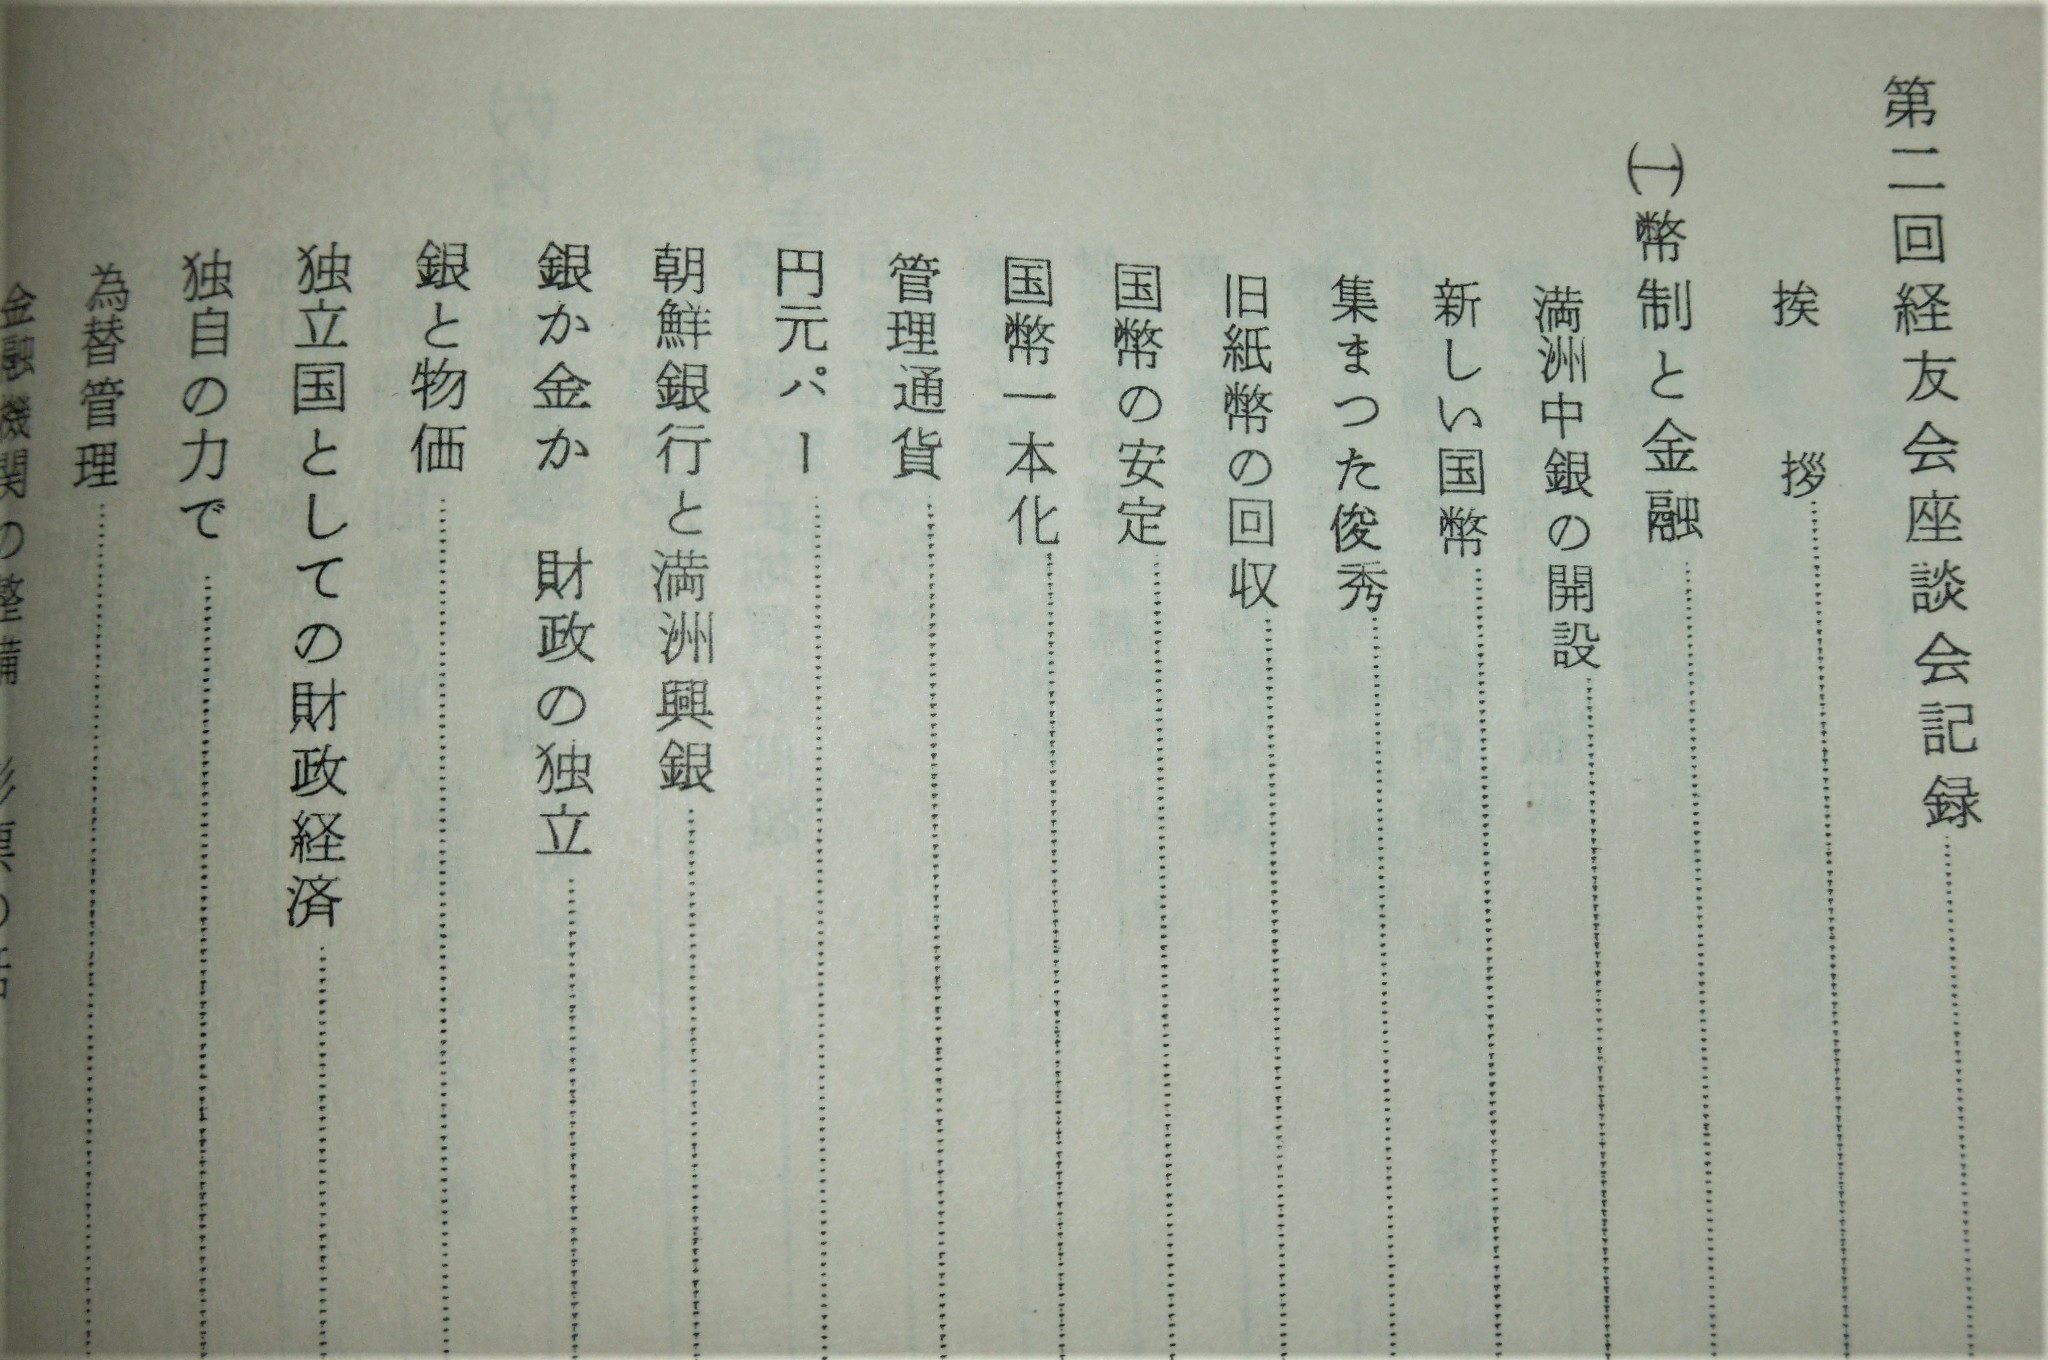 第二回経友会座談会記録
挨拶
㈠幣制と金融
満洲中銀の開設
新しい国幣
集まつた俊秀
旧紙幣の回収
国幣の安定
国幣一本化
管理通貨
円元パー
朝鮮銀行と満洲興銀
銀か金か 財政の独立
銀と物価
独立国としての財政経済
独自の力で
為替管理
金融機関の整備